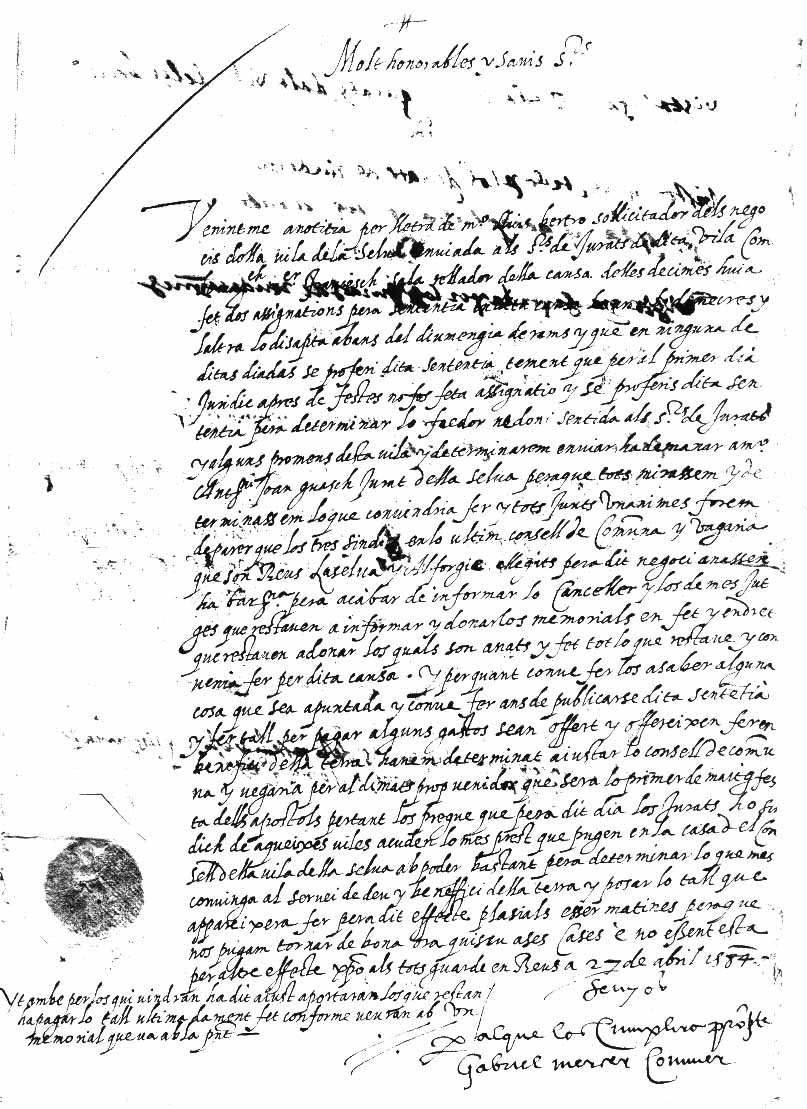 Molt honorables y savis S.rs
Venint me a notitia per lletra de m.º Luis bertro sollicitador dels nego
cis de lla vila de la Selva enviada als S.rs de Jurats de dita vila com
Francesch sala rellador della causa delles decimes havia
fet dos assignations pera sententia dimecres y
laltra lo disapta abans del diumengia de rams y que en ninguna de
ditas diadas se proferi dita sententia tement que peral primer dia
Juridic apres de festes no fos feta assignatio y se proferis dita sen
tentia pera determinar lo faedor ne doni sentida als S.rs de Jurats
y alguns promens desta vila y determinarem enviar ha demanar a m.º
Joan guasch Jurat della selva peraque tots mirassem y de
terminassem lo que convindria fer y tots Junts Unanimes forem
de parer que los tres sindichs en lo ultim consell de Comuna y vagaria
que son Reus Laselva y Allforgia ellegits pera dit negoci anassen
ha bar.na pera acabar de informar lo Canceller y los de mes Jut
ges que restaven a informar y donarlos memorials en fet y en dret
que restaven a donar los quals son anats y fet tot lo que restave y con
venia fer per dita causa. y perquant conve fer los a saber alguna
cosa que sea apuntada y conve fer ans de publicarse dita sentētia
y fer tall per pagar alguns gastos sean offert y offereixen fer en
benefici della terra havem determinat aiustar lo consell de comu
na y vegaria per al dimats propvenidor que sera lo primer de maitg fes
ta dels apostols pertant los pregue que pera dit dia los Jurats ho sin
dich de aqueixes viles acuden lo mes prest que pugen en la casa del Con
sell della vila della selva ab poder bastant pera determinar lo que mes
convinga al servei de deu y beneffici della terra y posar lo tall que
appareixera fer pera dit effecte plasials esser matines peraque
nos pugam tornar de bona ora quiscu a ses Cases e no essent esta
peraltre effecte xp̄o als tots guarde en Reus a 27 de abril 1584
Senyors
y tambe per los qui vindran ha dit aiust aportaran los que restan
ha pagar lo tall ultimadament fet conforme veuran ab un
memorial que va ab la pnt
alque los Cumplira prōpte
Gabriel mercer Comuner